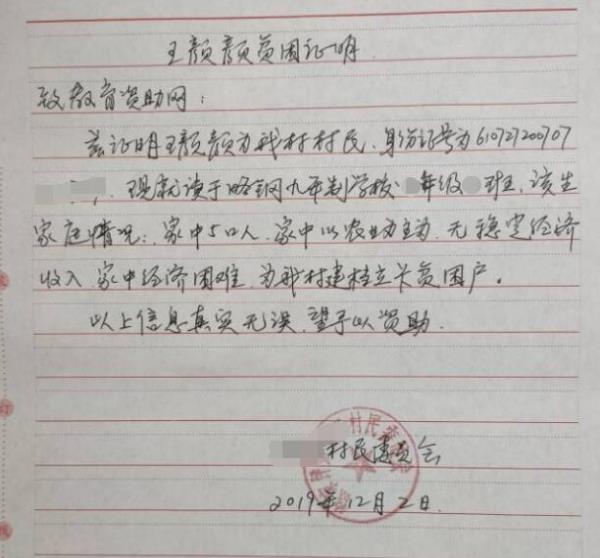 王颜颜贫困证明
致教育资助网：
兹证明王颜颜为我村村民，身份证号为610727200707
，现就读于略钢九年制学校 年级 班，该生
家庭情况：家中5口人，家中以农业为主为，无稳定经济
收入，家中经济困难，为我村建档立卡贫困户。
以上信息真实无误，望予以资助。
村民委员会
2019年12月2日